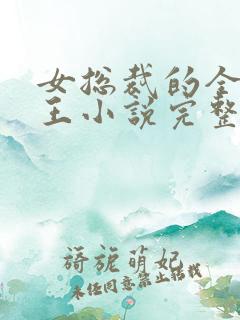 女总裁的全
王小说完整
旖旎萌妃
未经同意禁止转载